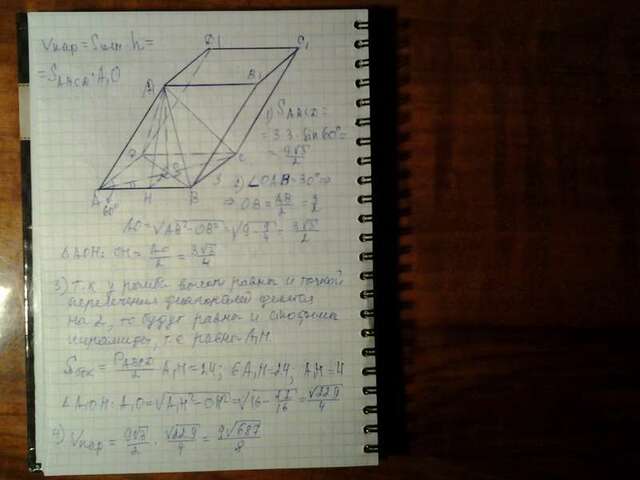 Vпар = Sосн · h =
= SABCD · A₁O
D₁ C₁
A₁ B₁
D C
O
A H B 3
60°
1) SABCD =
= 3·3·sin60° =
= 9√3/2
2) ∠OAB = 30° ⇒
⇒ OB = AB/2 = 3/2
AO = √AB² - OB² = √9 - 9/4 = 3√3/2
ΔAOH: OH = AO/2 = 3√3/4
3) т.к у ромба высоты равны и точкой
пересечения диагоналей делятся
на 2, то будут равны и апофемы
пирамиды, т.е равны A₁H.
Sбок = PABCD/2 · A₁H = 24; 6A₁H = 24; A₁H = 4
ΔA₁OH: A₁O = √A₁H² - OH² = √16 - 27/16 = √229/4
4) Vпар = 9√3/2 · √229/4 = 9√687/8